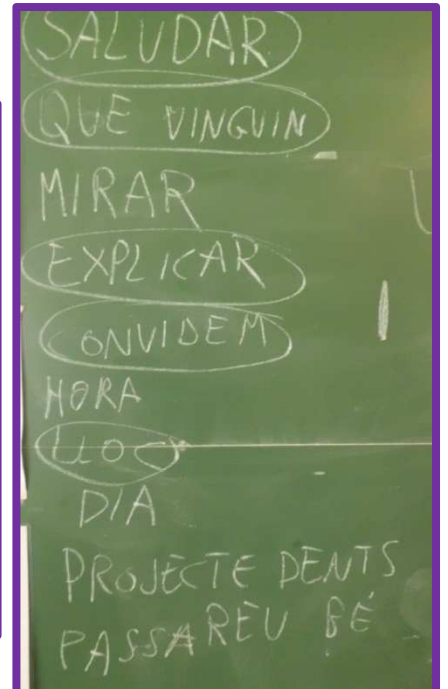 SALUDAR
QUE VINGUIN
MIRAR
EXPLICAR
CONVIDEM
HORA
LLOC
DIA
PROJECTE DENTS
PASSAREU BÉ